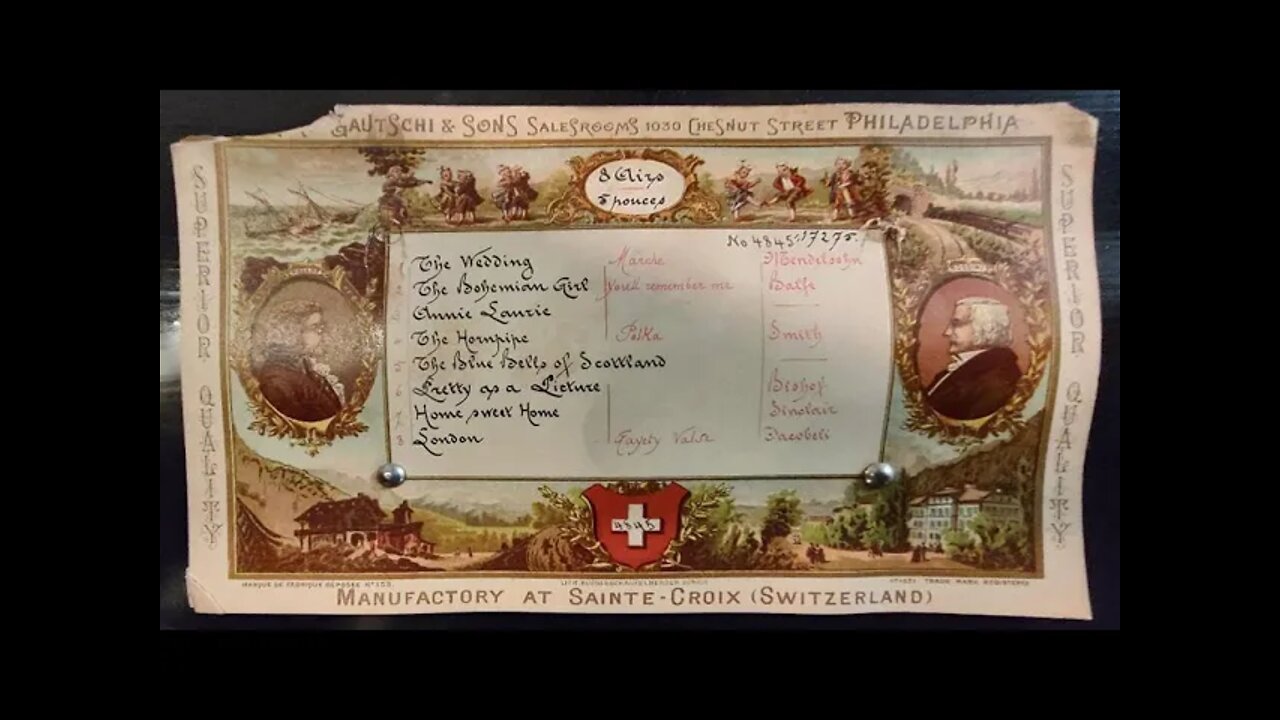 GAUTSCHI & SONS SALESROOMS 1030 CHESNUT STREET PHILADELPHIA
SUPERIOR QUALITY
8 Airs
5 pouces
No 4845 17275.
1 The Wedding Marche Mendelsohn
2 The Bohemian Girl You'll remember me Balfe
Annie Laurie
4 The Hornpipe Polka Smith
5 The Blue Bells of Scottland
6 Pretty as a Picture Bishof
7 Home sweet Home Sinclair
8 London Gayety Valse Jacobeli
SUPERIOR QUALITY
4845
MARQUE DE FABRIQUE DEPOSEE No 153.
TRADE MARK REGISTERED
MANUFACTORY AT SAINTE-CROIX (SWITZERLAND)